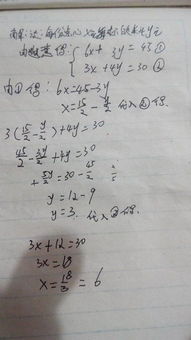 由题意得: { 6x + 3y = 45 ①
3x + 4y = 30 ②
由①得: 6x = 45 - 3y
x = 15/2 - y/2 代入②得.
3(15/2 - y/2) + 4y = 30
45/2 - 3y/2 + 4y = 30
+ 5/2 y = 30 - 45/2
y = 12 - 9
y = 3. 代入②得.
3x + 12 = 30
3x = 18
x = 18/3 = 6